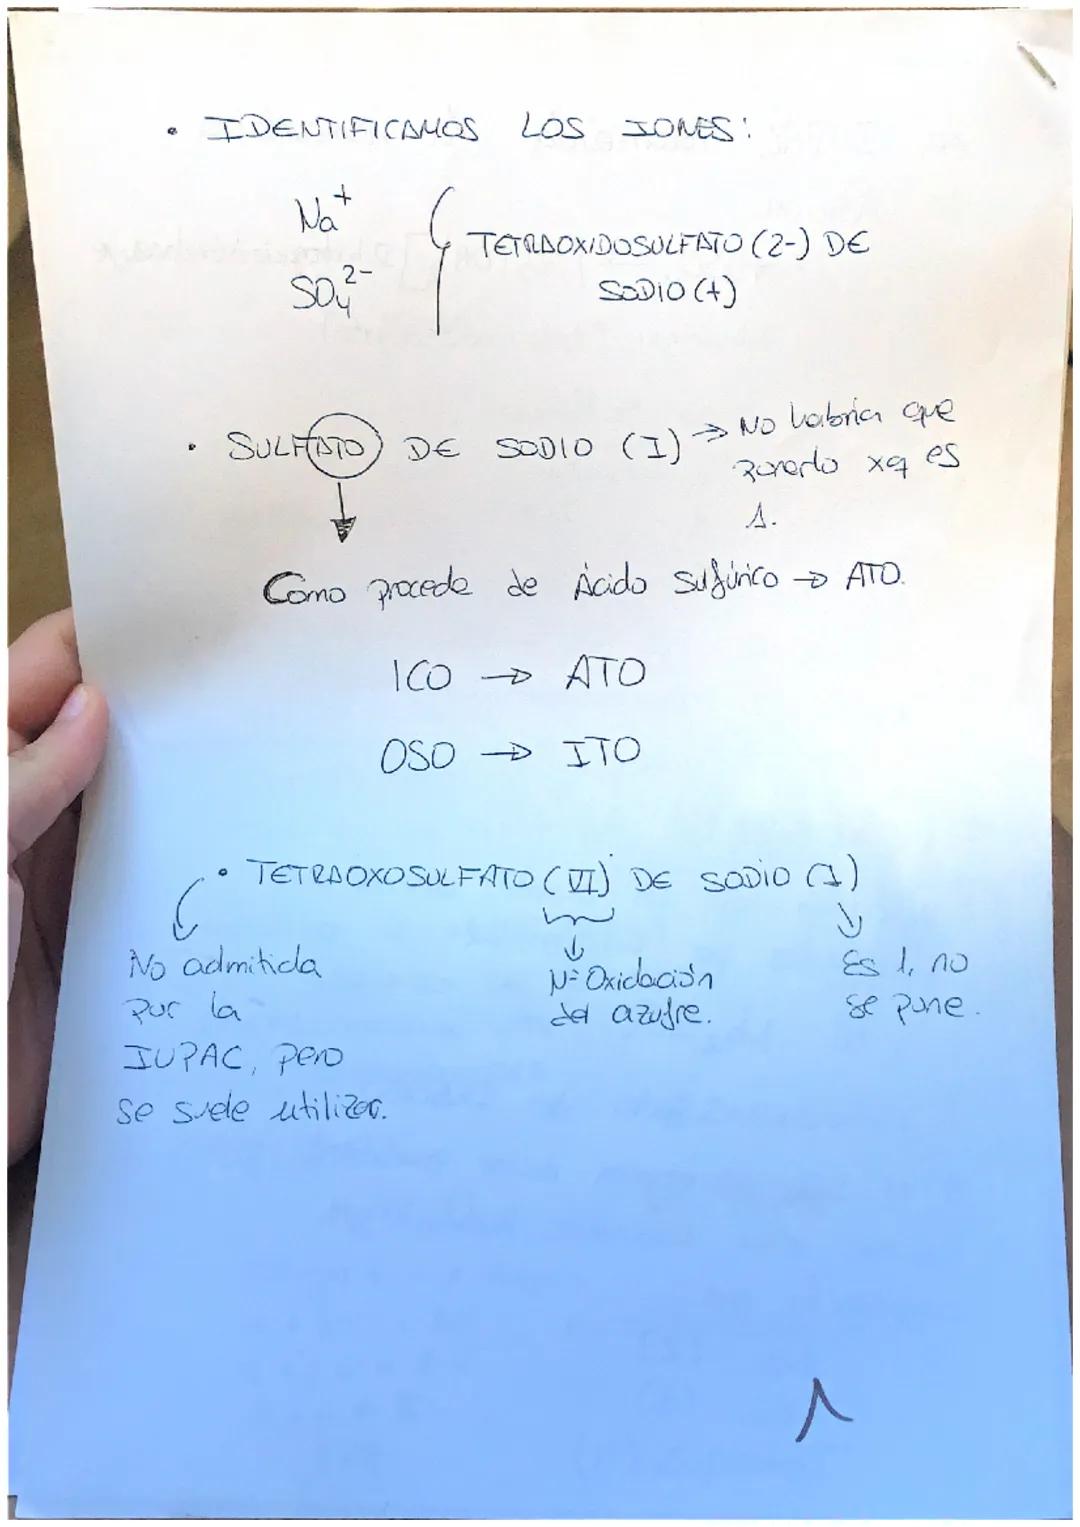 • IDENTIFICAMOS LOS IONES:
Na⁺
SO₄²⁻
TETRAOXIDOSULFATO (2-) DE
SODIO (+)
• SULFATO DE SODIO (I) → No habría que
ponerlo xq es
1.
Como procede de Ácido sulfúrico → ATO.
ICO → ATO
OSO → ITO
• TETRAOXOSULFATO (VI) DE SODIO (I)
No admitida
por la
IUPAC, pero
se suele utilizar.
Nº Oxidación
del azufre.
Es 1, no
se pone.